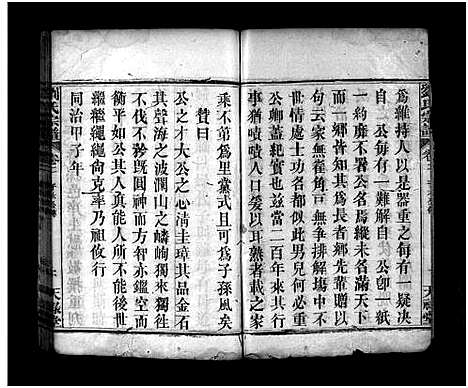 劉氏宗譜
爲維持人以是器重之每有一疑決
自 公每有一難解自 公卽一紙
半字片爲公名焉縱未名滿天下
而一鄉皆知其爲長者鄉先輩贈以
句云家無雀角三世無爭排解場中不
世情處士功名都讓與兒男何必重
公卿蓋紀實也兹當二百年來其行
事猶嘖嘖人口爰以耳熟者載之家
乘不第爲里黨式且可爲子孫風矣
贊曰
公之才大公之心淸圭璋其品金石
其聲海之波瀾山之嶙峋獨來獨往
不伐不矜旣圓神而方智亦鑑空而
衡平如公其人眞能人所不能後世
繼繼繩繩尙克率乃祖攸行
同治甲子年
劉氏宗譜